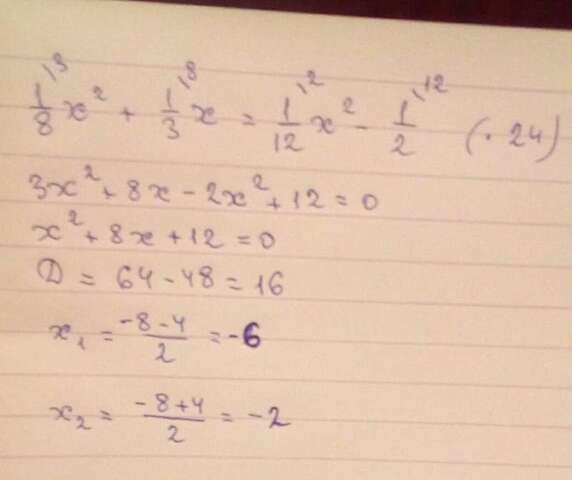 1/8\³ x² + 1/3\⁸ x = 1/12\² x² - 1/2\¹² (· 24)
3x² + 8x - 2x² + 12 = 0
x² + 8x + 12 = 0
D = 64 - 48 = 16
x₁ = (-8-4)/2 = -6
x₂ = (-8+4)/2 = -2